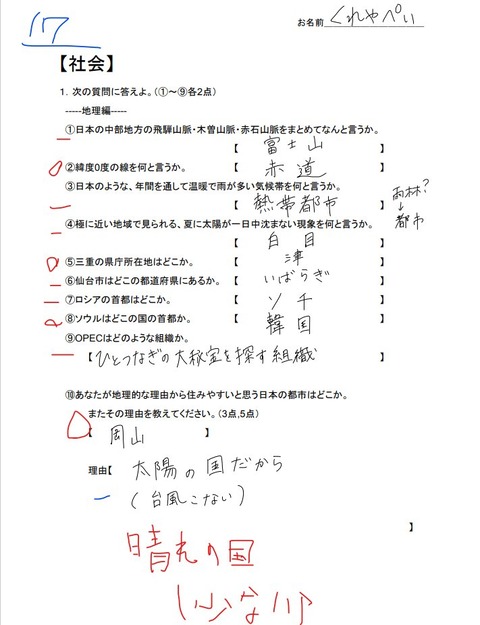 17
お名前 くれやぺい
【社会】
1. 次の質問に答えよ。(①～⑨各2点)
-----地理編-----
①日本の中部地方の飛騨山脈・木曽山脈・赤石山脈をまとめてなんと言うか。
【 富士山 】
②緯度0度の線を何と言うか。 【 赤道 】
③日本のような、年間を通して温暖で雨が多い気候帯を何と言うか。
【 熱帯都市 】 雨林?
↓
都市
④極に近い地域で見られる、夏に太陽が一日中沈まない現象を何と言うか。
【 白目 】
⑤三重の県庁所在地はどこか。 【 津 】
⑥仙台市はどこの都道府県にあるか。 【 いばらぎ 】
⑦ロシアの首都はどこか。 【 ソチ 】
⑧ソウルはどこの国の首都か。 【 韓国 】
⑨OPECはどのような組織か。
【 ひとつなぎの大秘宝を探す組織 】
⑩あなたが地理的な理由から住みやすいと思う日本の都市はどこか。
またその理由を教えてください。(3点,5点)
【 岡山 】
理由【 太陽の国だから
(台風こない)
】
晴れの国